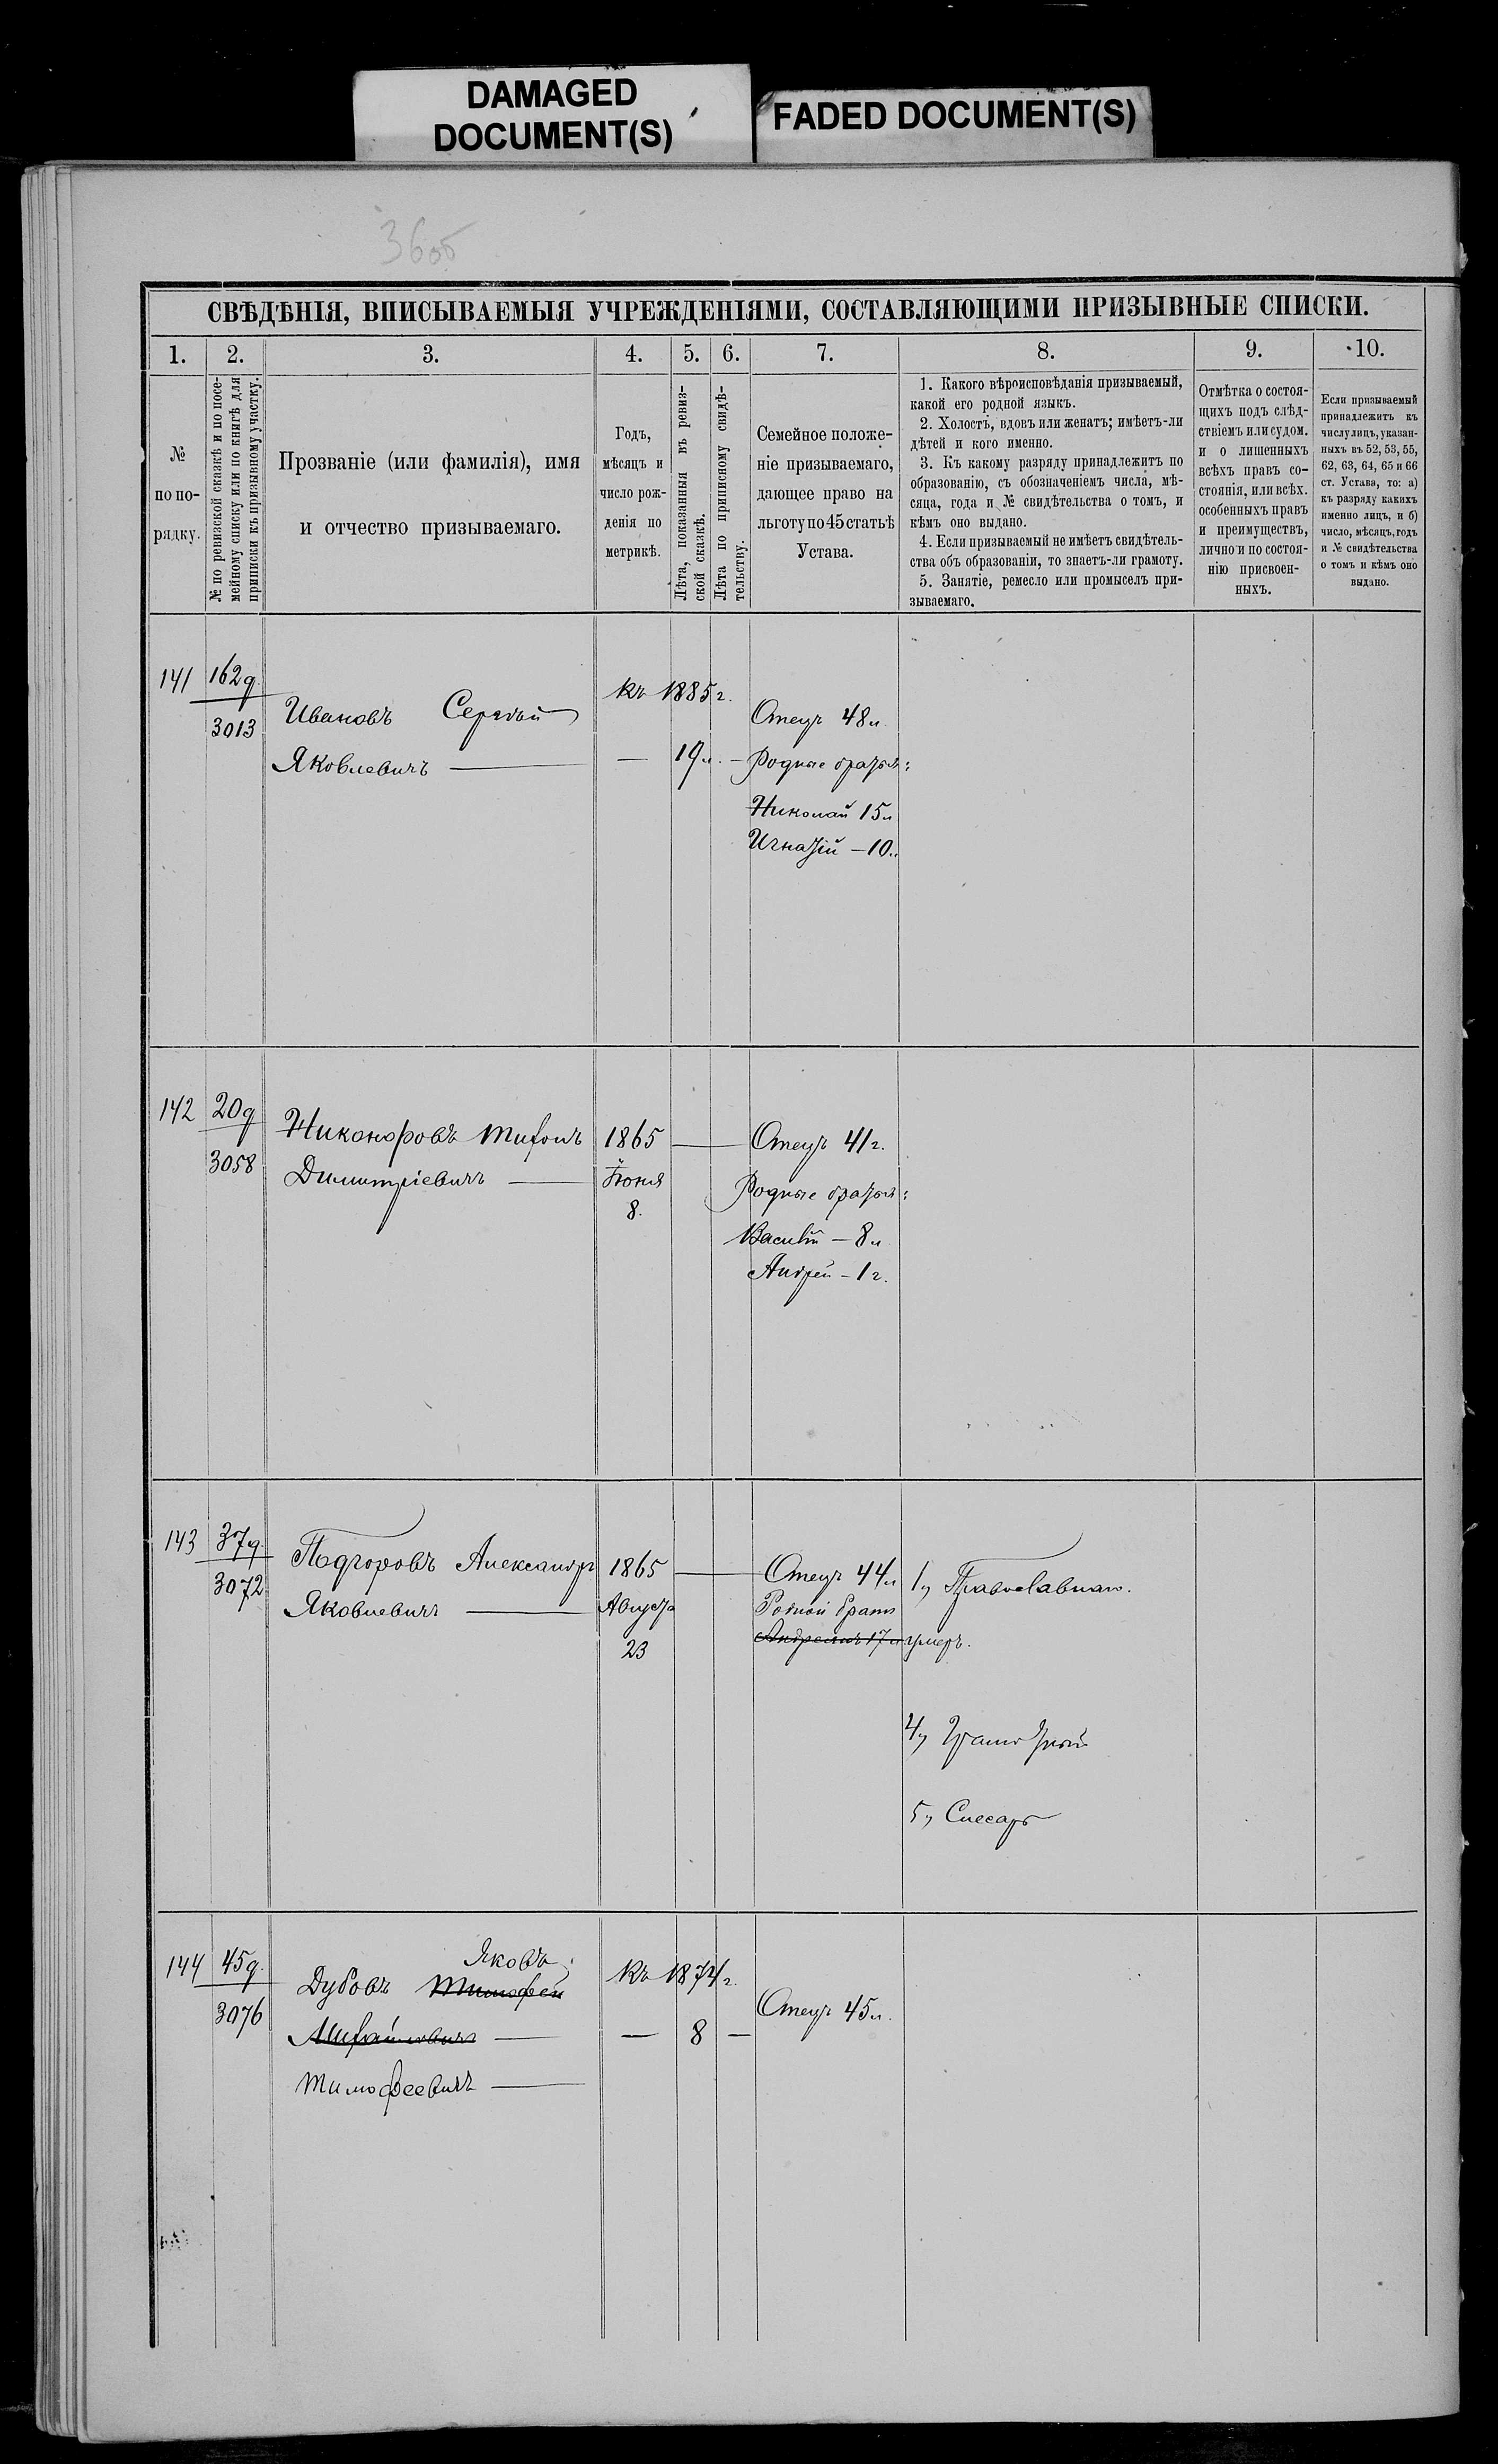 DAMAGED
DOCUMENT(S)
FADED DOCUMENT(S)
36об
СВѢДѢНІЯ, ВПИСЫВАЕМЫЯ УЧРЕЖДЕНІЯМИ, СОСТАВЛЯЮЩИМИ ПРИЗЫВНЫЕ СПИСКИ.
1. 2. 3. 4. 5. 6. 7. 8. 9. 10.
№
по по-
рядку.
№ по ревизской сказкѣ и по посе-
мейному списку или по книгѣ для
приписки къ призывному участку.
Прозваніе (или фамилія), имя
и отчество призываемаго.
Годъ,
мѣсяцъ и
число рож-
денія по
метрикѣ.
Лѣта, показанныя въ ревиз-
ской сказкѣ.
Лѣта по приписному свидѣ-
тельству.
Семейное положе-
ніе призываемаго,
дающее право на
льготу по 45 статьѣ
Устава.
1. Какого вѣроисповѣданія призываемый,
какой его родной языкъ.
2. Холостъ, вдовъ или женатъ; имѣетъ-ли
дѣтей и кого именно.
3. Къ какому разряду принадлежитъ по
образованію, съ обозначеніемъ числа, мѣ-
сяца, года и № свидѣтельства о томъ, и
кѣмъ оно выдано.
4. Если призываемый не имѣетъ свидѣтель-
ства объ образованіи, то знаетъ-ли грамоту.
5. Занятіе, ремесло или промыселъ при-
зываемаго.
Отмѣтка о состоя-
щихъ подъ слѣд-
ствіемъ или судомъ.
и о лишенныхъ
всѣхъ правъ со-
стоянія, или всѣхъ.
особенныхъ правъ
и преимуществъ,
лично и по состоя-
нію присвоен-
ныхъ.
Если призываемый
принадлежитъ къ
числу лицъ, указан-
ныхъ въ 52, 53, 55,
62, 63, 64, 65 и 66
ст. Устава, то: а)
къ разряду какихъ
именно лицъ, и б)
число, мѣсяцъ, годъ
и № свидѣтельства
о томъ и кѣмъ оно
выдано.
141 162д. 3013
Ивановъ Сергѣй
Яковлевичъ —
къ 1885 г.
— 19 л. —
Отецъ 48 л.
Родные братья:
Николай 15 л
Игнатій — 10 л
142 20д 3058
Никоноровъ
Димитріевичъ —
1865
Іюня
8.
Отецъ 41 г.
Родные братья:
Василій — 8 л
Андрей — 1 г.
143 37д. 3072
Александръ
Яковлевичъ —
1865
Августа
23
Отецъ 44 л
Родной братъ
17 л умеръ.
1, Православнаго.
4, Грамотный
5, Слесарь
144 45д. 3076
Яковъ
Дубовъ Тимофей
Михайловичъ —
Тимофеевичъ —
къ 1874 г.
— 8 —
Отецъ 45 л.